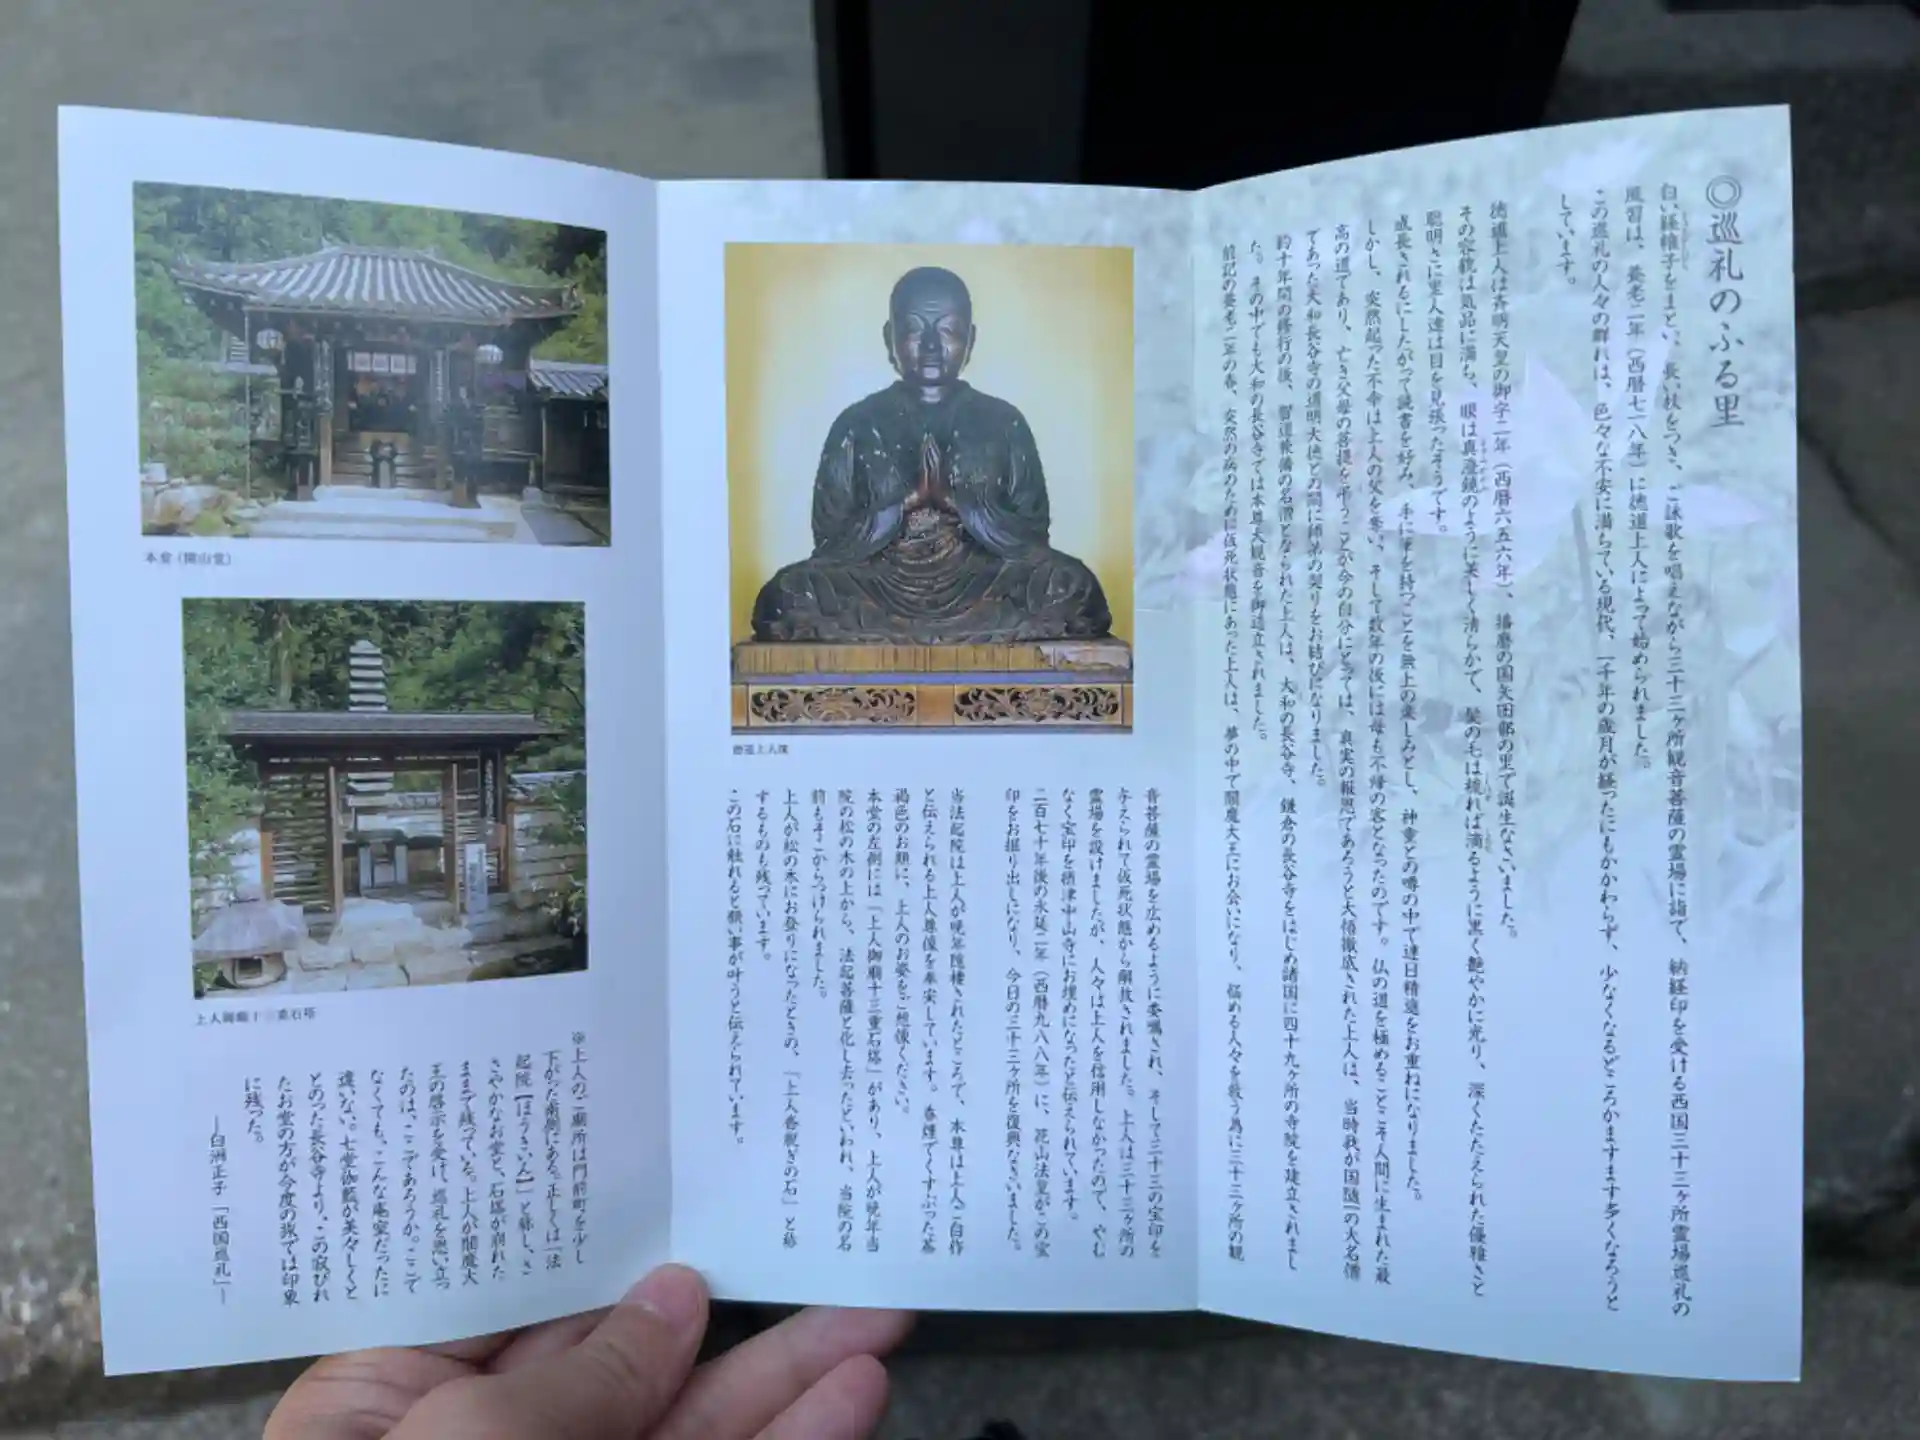 ◎巡礼のふる里
白い経帷子をまとい、長い杖をつき、ご詠歌を唱えながら三十三ヶ所観音菩薩の霊場に詣で、納経印を受ける西国三十三ヶ所霊場巡礼の
風習は、養老二年（西暦七一八年）に徳道上人によって始められました。
この巡礼の人々の群れは、色々な不安に満ちている現代、一千年の歳月が経ったにもかかわらず、少なくなるどころかますます多くなろうと
しています。
徳道上人は斉明天皇の御字二年（西暦六五六年）、播磨の国矢田部の里で誕生なさいました。
その容貌は気品に満ち、眼は真澄鏡のように美しく清らかで、髪の毛は梳れば滴るように黒く艶やかに光り、深くたたえられた優雅さと
聡明さに里人達は目を見張ったそうです。
成長されるにしたがって読書を好み、手に筆を持つことを無上の楽しみとし、神童との噂の中で連日精進をお重ねになりました。
しかし、突然起った不幸は上人の父を奪い、そして数年の後には母も不帰の客となったのです。仏の道を極めることこそ人間に生まれた最
高の道であり、亡き父母の菩提を弔うことが今の自分にとっては、真実の報恩であろうと大悟徹底された上人は、当時我が国随一の大名僧
であった大和長谷寺の道明大徳との間に師弟の契りをお結びになりました。
約十年間の修行の後、智道兼備の名僧となられた上人は、大和の長谷寺、鎌倉の長谷寺をはじめ諸国に四十九ヶ所の寺院を建立されまし
た。その中でも大和の長谷寺では本尊大観音を御造立されました。
前記の養老二年の春、突然の病のために仮死状態にあった上人は、夢の中で閻魔大王にお会いになり、悩める人々を救う為に三十三ヶ所の観
音菩薩の霊場を広めるように委嘱され、そして三十三の宝印を
与えられて仮死状態から解放されました。上人は三十三ヶ所の
霊場を設けましたが、人々は上人を信用しなかったので、やむ
なく宝印を摂津中山寺にお埋めになったと伝えられています。
二百七十年後の永延二年（西暦九八八年）に、花山法皇がこの宝
印をお掘り出しになり、今日の三十三ヶ所を復興なさいました。
当法起院は上人が晩年隠棲されたところで、本尊は上人ご自作
と伝えられる上人尊像を奉安しています。香煙でくすぶった茶
褐色のお顔に、上人のお姿をご想像ください。
本堂の左側には「上人御廟十三重石塔」があり、上人が晩年当
院の松の木の上から、法起菩薩と化し去ったといわれ、当院の名
前もそこからつけられました。
上人が松の木にお登りになったときの、「上人沓脱ぎの石」と称
するものも残っています。
この石に触れると願い事が叶うと伝えられています。
徳道上人像
本堂（開山堂）
上人御廟十三重石塔
※上人のご廟所は門前町を少し
下がった南側にある。正しくは「法
起院【ほうきいん】」と称し、さ
さやかなお堂と、石塔が崩れた
ままで残っている。上人が閻魔大
王の啓示を受け、巡礼を思い立っ
たのは、ここであろうか。ここで
なくても、こんな庵室だったに
違いない。七堂伽藍が美々しくと
とのった長谷寺より、この寂びれ
たお堂の方が今度の旅では印象
に残った。
―白洲正子「西国巡礼」―